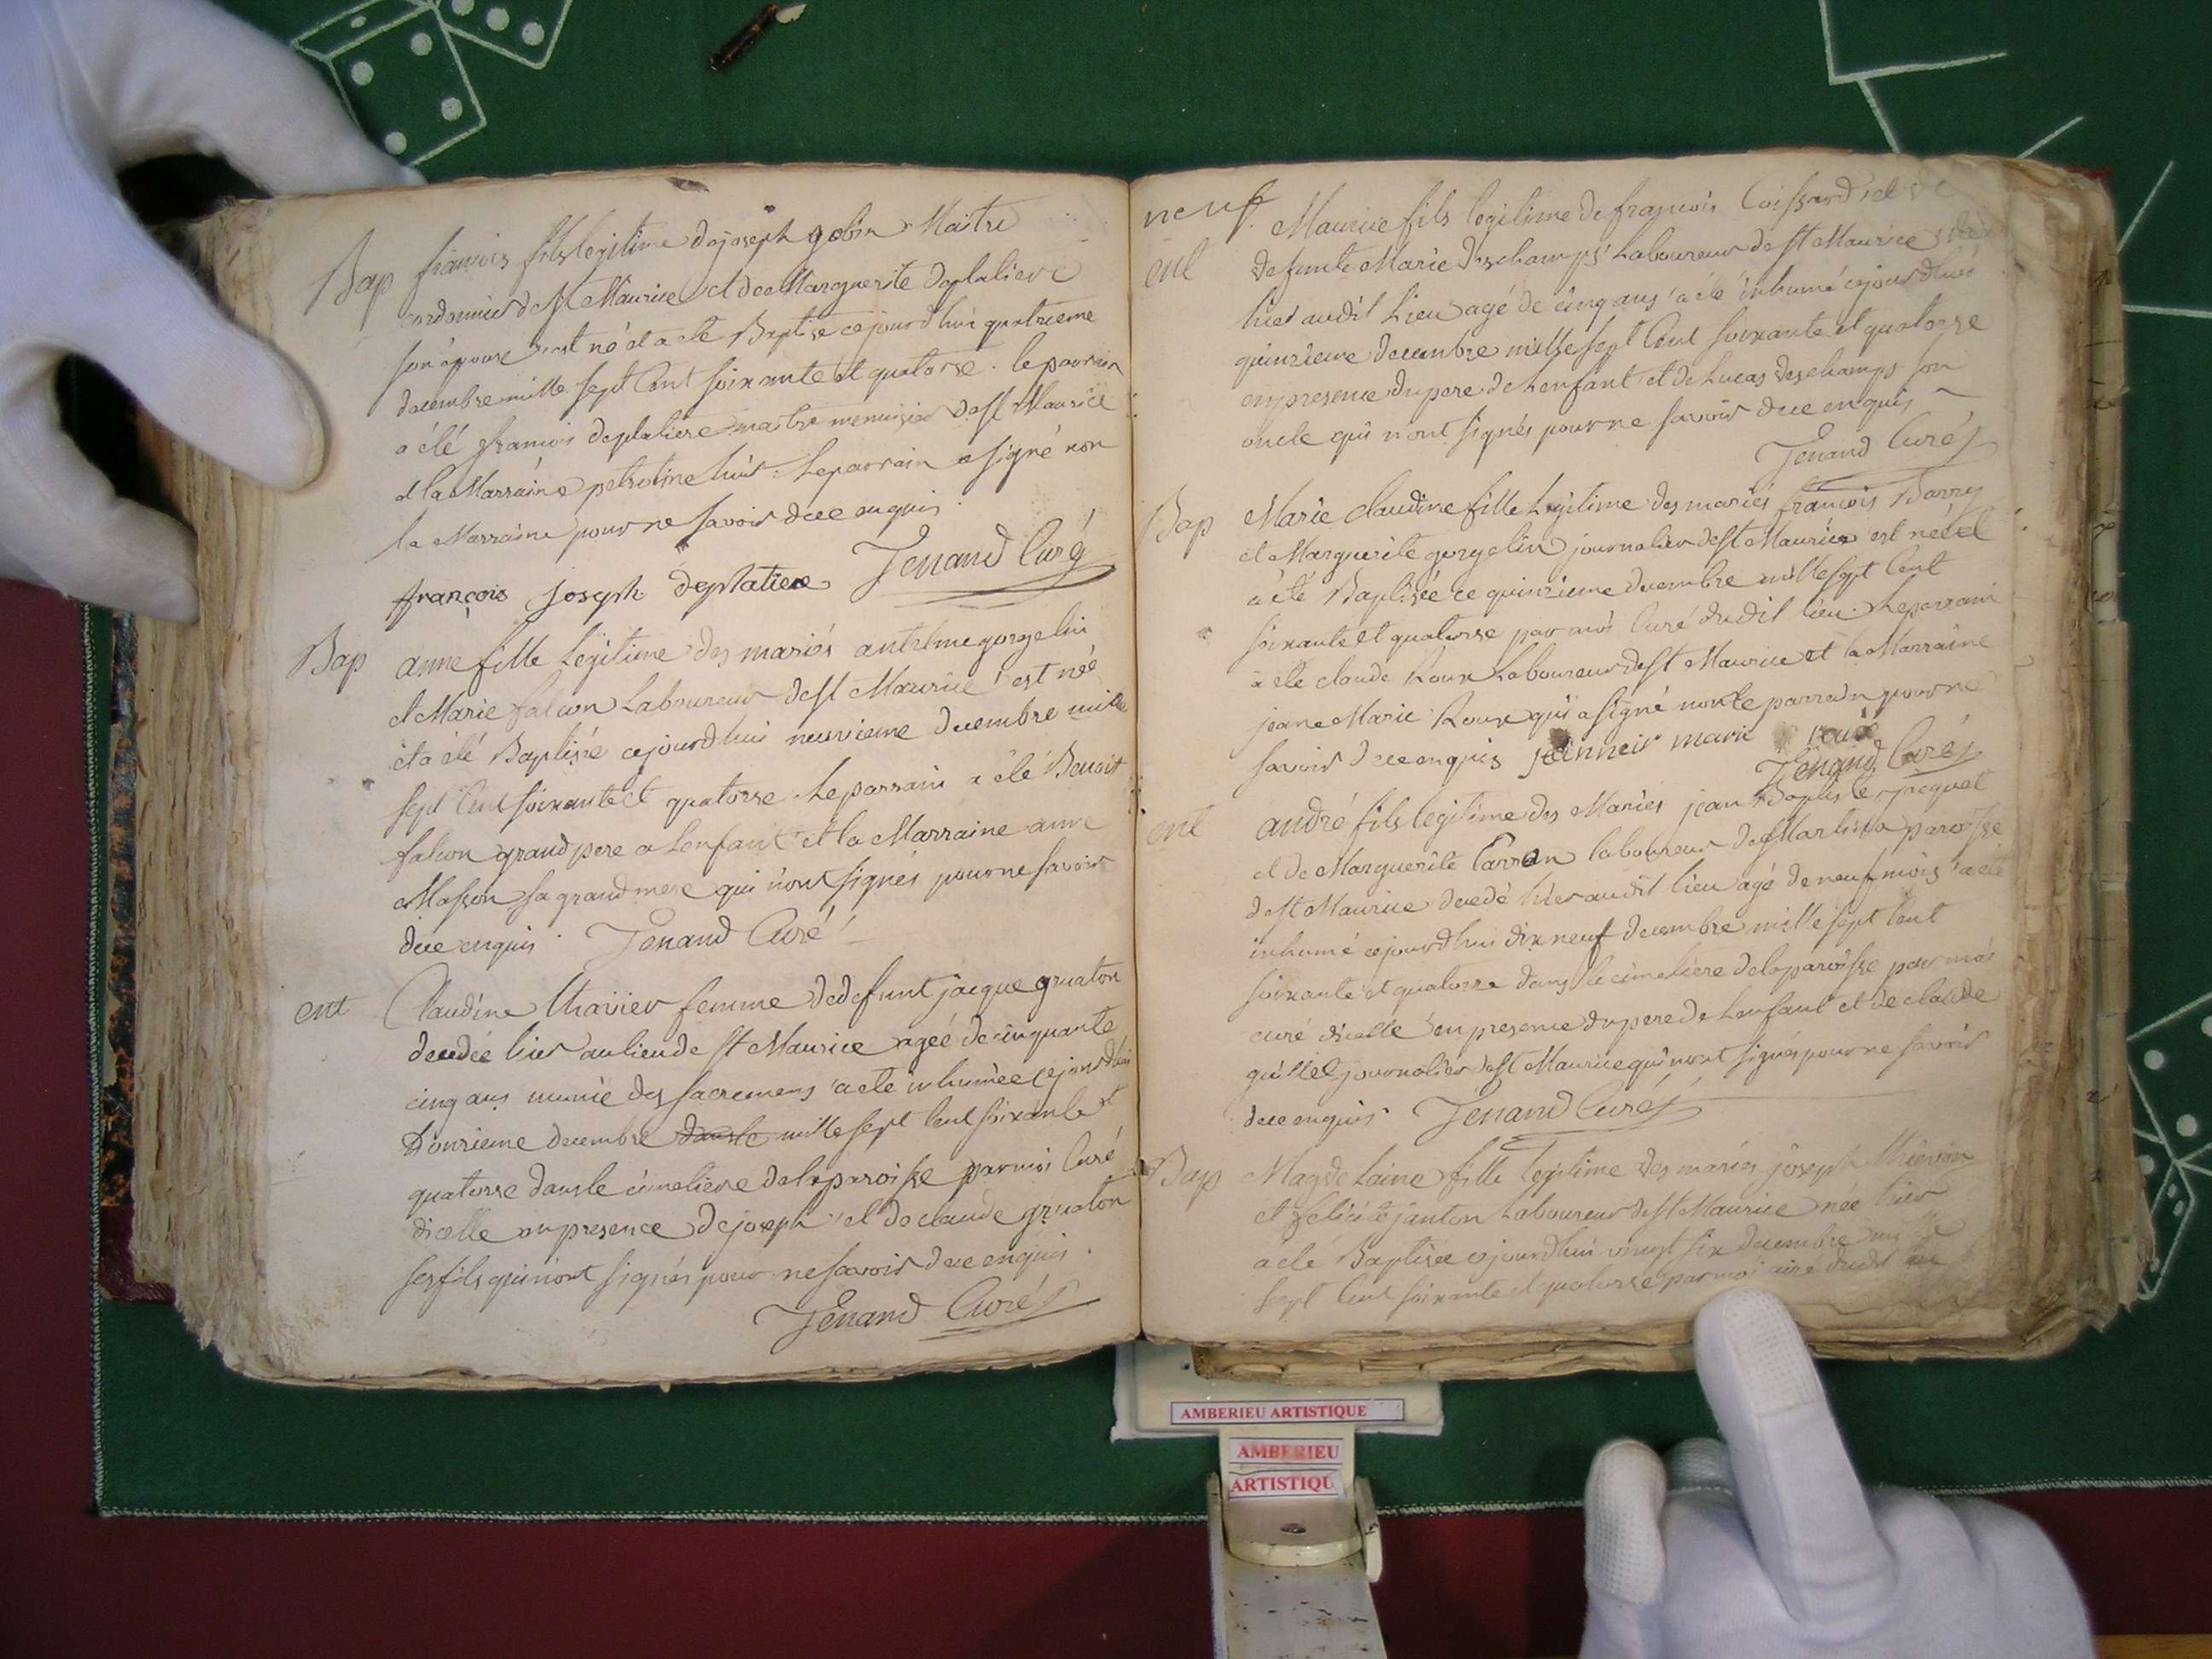 Bap françois fils legitime de joseph gobin Maitre
cordonnier de St Maurice et de Marguerite deplatiere
son épouse est né et a eté Baptisé ce jourd'hui quatrieme
decembre mille sept Cent soixante et quatorse. le parrain
a été françois deplatiere maitre menuisier de St Maurice
et la Marraine petrotine huit. le parrain a signé non
la Marraine pour ne savoir de ce enquis.
françois Joseph deplatiere Jenand Curé
Bap anne fille legitime des mariés antelme gorgelin
et Marie falcon Laboureur de St Maurice est née
et a élé Baptisée cejourdhui neuvieme decembre mille
sept Cent soixante et quatorse. Le parrain a élé Benoit
falcon grand pere a Lenfant et la Marraine anne
Masson sa grand mere qui n'ont signés pour ne savoir
de ce enquis. Jenand Curé
ent Claudine thavier femme de defunt jacque gruaton
decedée hier au lieu de St Maurice agée de cinquante
cinq ans munie des sacremens a eté inhumée cejourdhui
Donzieme decembre mille sept Cent soixante et
quatorse dans le cimetiere de la paroisse par moi Curé
dicelle en presence de joseph et de claude gruaton
ses fils qui n'ont signés pour ne savoir de ce enquis.
Jenand Curé
neuf
ent Maurice fils legitime de francois Coissard et de
defunte Marie deschamps Laboureur de St Maurice
hier audit Lieu agé de cinq ans a été inhumé cejourdhui
quinzieme decembre mille sept Cent soixante et quatorze
en presence du pere de Lenfant et de Lucas deschamps son
oncle qui n'ont signés pour ne savoir de ce enquis
Jenand Curé
Bap Marie claudine fille Legitime des mariés françois Barry
et Marguerite gorgelin journalier de St Maurice est née et
a été Baptisée ce quinzieme decembre mille sept Cent
soixante et quatorse par moi Curé dudit lieu. Le parrain
a élé claude Roux Laboureur de St Maurice et la Marraine
jeane Marie Roux qui a signé non le parrain pour ne
savoir de ce enquis marie roux
Jenand Curé
ent andré fils legitime des Mariés jean Baptiste jacquet
et de Marguerite Carron laboureur de Martinas paroisse
de St Maurice decedé hier audit lieu agé de neuf mois a eté
inhumé cejourdhui dix neuf decembre mille sept Cent
soixante et quatorse dans le cimetiere de la paroisse par moi
curé dicelle en presence du pere de Lenfant et de claude
guillet journalier de St Maurice qui n'ont signés pour ne savoir
de ce enquis Jenand Curé
Bap Magdelaine fille legitime des mariés joseph thievon
et felicite janton Laboureur de St Maurice née hier
a élé Baptisée cejourdhui vingt six decembre mille
sept Cent soixante et quatorse par moi curé dudit lieu
AMBERIEU ARTISTIQUE
AMBERIEU
ARTISTIQU